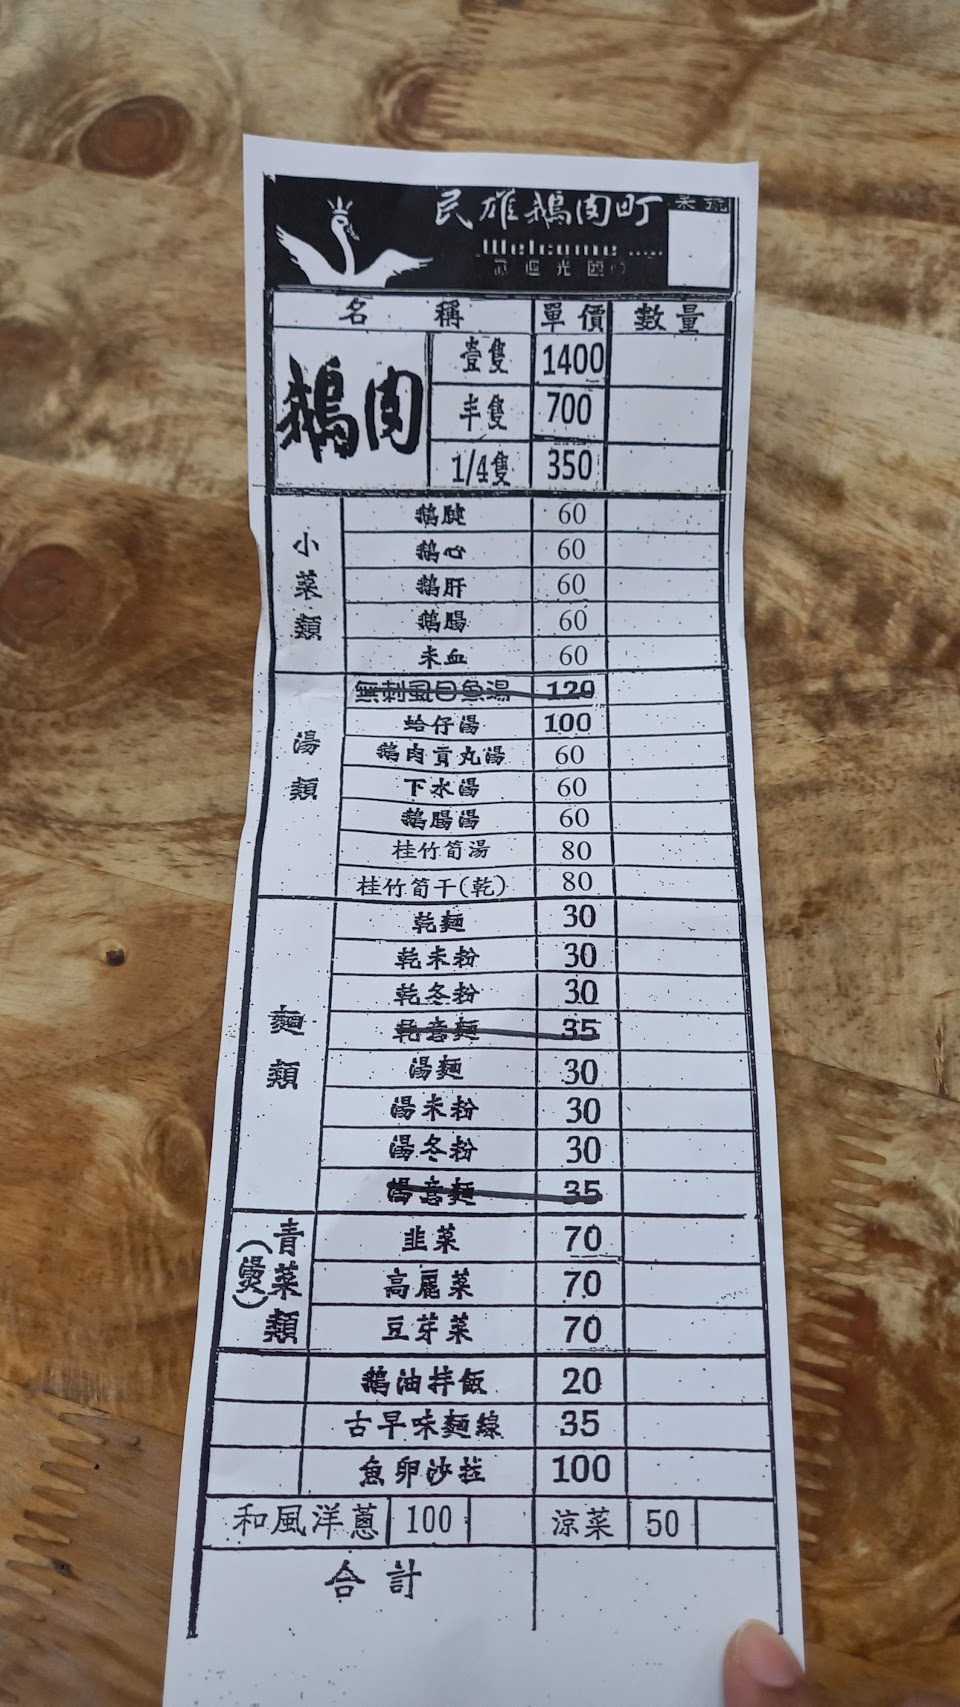 民雄鵝肉町
桌號
Welcome
歡迎光臨
名稱 單價 數量
鵝肉
壹隻 1400
半隻 700
1/4隻 350
小菜類
鵝腱 60
鵝心 60
鵝肝 60
鵝腸 60
米血 60
湯類
無刺虱目魚湯 120
蛤仔湯 100
鵝肉貢丸湯 60
下水湯 60
鵝腸湯 60
桂竹筍湯 80
桂竹筍干(乾) 80
麵類
乾麵 30
乾米粉 30
乾冬粉 30
乾意麵 35
湯麵 30
湯米粉 30
湯冬粉 30
湯意麵 35
青菜類(燙)
韭菜 70
高麗菜 70
豆芽菜 70
鵝油拌飯 20
古早味麵線 35
魚卵沙拉 100
和風洋蔥 100 涼菜 50
合計